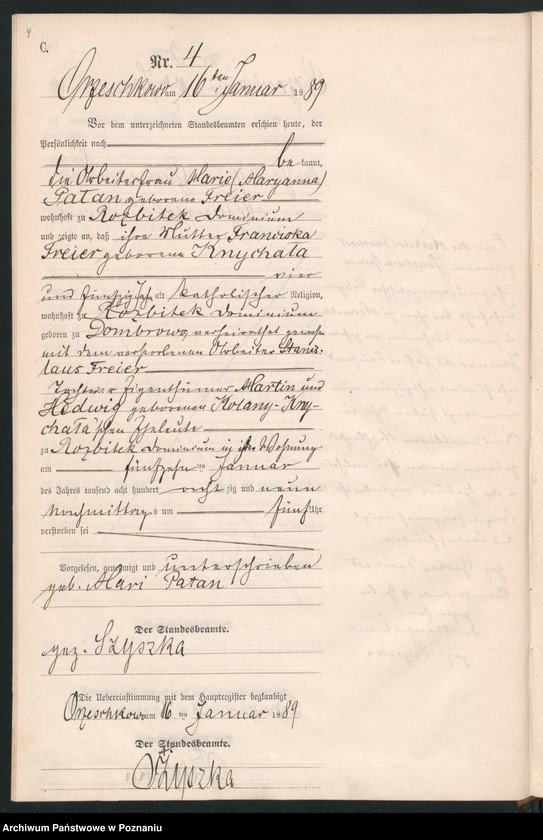 4
C.
Nr. 4
Orzeschkowo am 16 ten Januar 1889
Vor dem unterzeichneten Standesbeamten erschien heute, der
Persönlichkeit nach
be kannt,
die Arbeiterfrau Marie (Maryanna)
Patan geborene Freier
wohnhaft zu Rozbitek Dominium
und zeigte an, daß ihre Mutter Franciska
Freier geborene Knychala
vier
und fünfzig Jahr alt katholischer Religion,
wohnhaft zu Rozbitek Dominium
geboren zu Dombrowo, verheirathet gewesen
mit dem verstorbenen Arbeiter Stanis-
laus Freier
Tochter Eigenthümer Martin und
Hedwig geborenen Kolany-Kny-
chala'schen Eheleute
zu Rozbitek Dominium in ihrer Wohnung
am fünfzehn ten Januar
des Jahres tausend acht hundert acht zig und neun
Nachmittag s um fünf Uhr
verstorben sei
Vorgelesen, genehmigt und unterschrieben
geb. Mari Patan
Der Standesbeamte.
gez. Szyszka
Die Uebereinstimmung mit dem Hauptregister beglaubigt
Orzeschkowo am 16 ten Januar 1889
Der Standesbeamte.
Szyszka
Archiwum Państwowe w Poznaniu